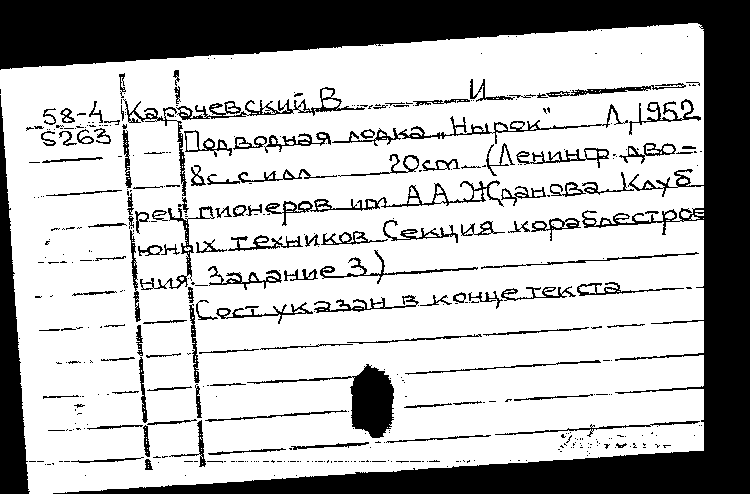 58-4 Карачевский, В И
5263 Подводная лодка „Нырок". Л., 1952
8с. с илл 20см. (Ленингр. дво-
рец пионеров им А А Жданова. Клуб
юных техников Секция кораблестрое
ния. Задание 3.)
Сост указан в конце текста